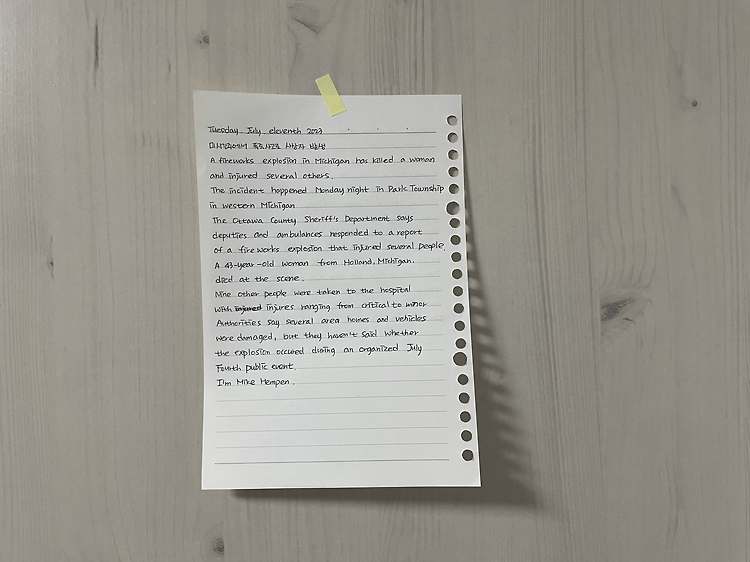 Tuesday July eleventh 2023
미시간에서 폭죽사고로 사상자 발생
A fireworks explosion in Michigan has killed a woman
and injured several others.
The incident happened Monday night in Park Township
in western Michigan
The Ottawa County Sheriff's Department says
deputies and ambulances responded to a report
of a fireworks explosion that injured several people.
A 43-year-old woman from Holland, Michigan.
died at the scene.
Nine other people were taken to the hospital
with injures ranging from critical to minor
Authorities say several area homes and vehicles
were damaged, but they haven't said whether
the explosion occured during an organized July
Fourth public event.
I'm Mike Hempen.